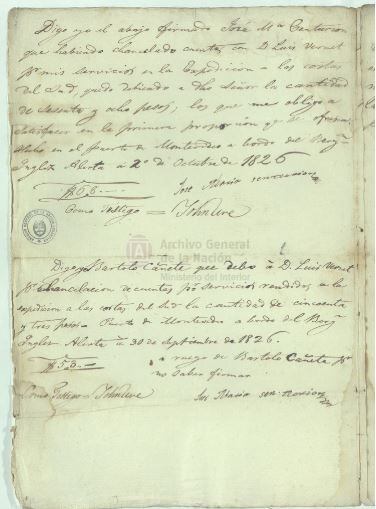 Digo yo el abajo firmado José Ma. Centurion
que habiendo chancelado cuentas con D. Luis Vernet
pr. mis servicios en la Expedicion a las costas
del Sud, quedo debiendo a dho Señor la cantidad
de sesenta y ocho pesos, los que me obligo a
satisfacer en la primera proporcion que se ofresca
Hecho en el puerto de Montevideo a bordo del Bergn.
Ingles Alerta a 2 de Octubre de 1826
$68
Jose Maria senturion
Como Testigo = John
Archivo General
de la Nación
Ministerio del Interior
Digo yo Bartolo Cañete que debo a D. Luis Vernet
pr. chancelacion de cuentas pr. servicios rendidos a la
expedicion a las costas del Sud la cantidad de cincuenta
y tres pesos. Puerto de Montevideo a bordo del Bergn.
Ingles Alerta a 30 de Septiembre de 1826.
$53
a ruego de Bartolo Cañete pr.
no saber firmar
Como Testigo John
Jose Maria senturion